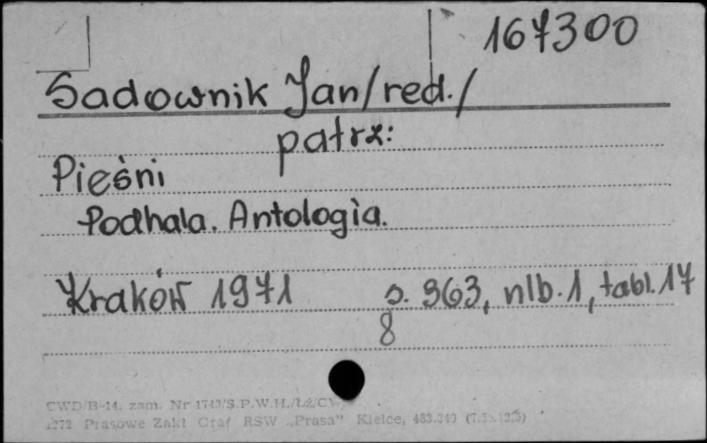 167300
Sadownik Jan /red./
patrz:
Pieśni
Podhala. Antologia.
Kraków 1971 s. 363, nlb. 1, tabl. 17
8
CWD/B-14. zam. Nr 1743/S.P.W.H./
1272 Prasowe Zakł Graf RSW „Prasa” Kielce,